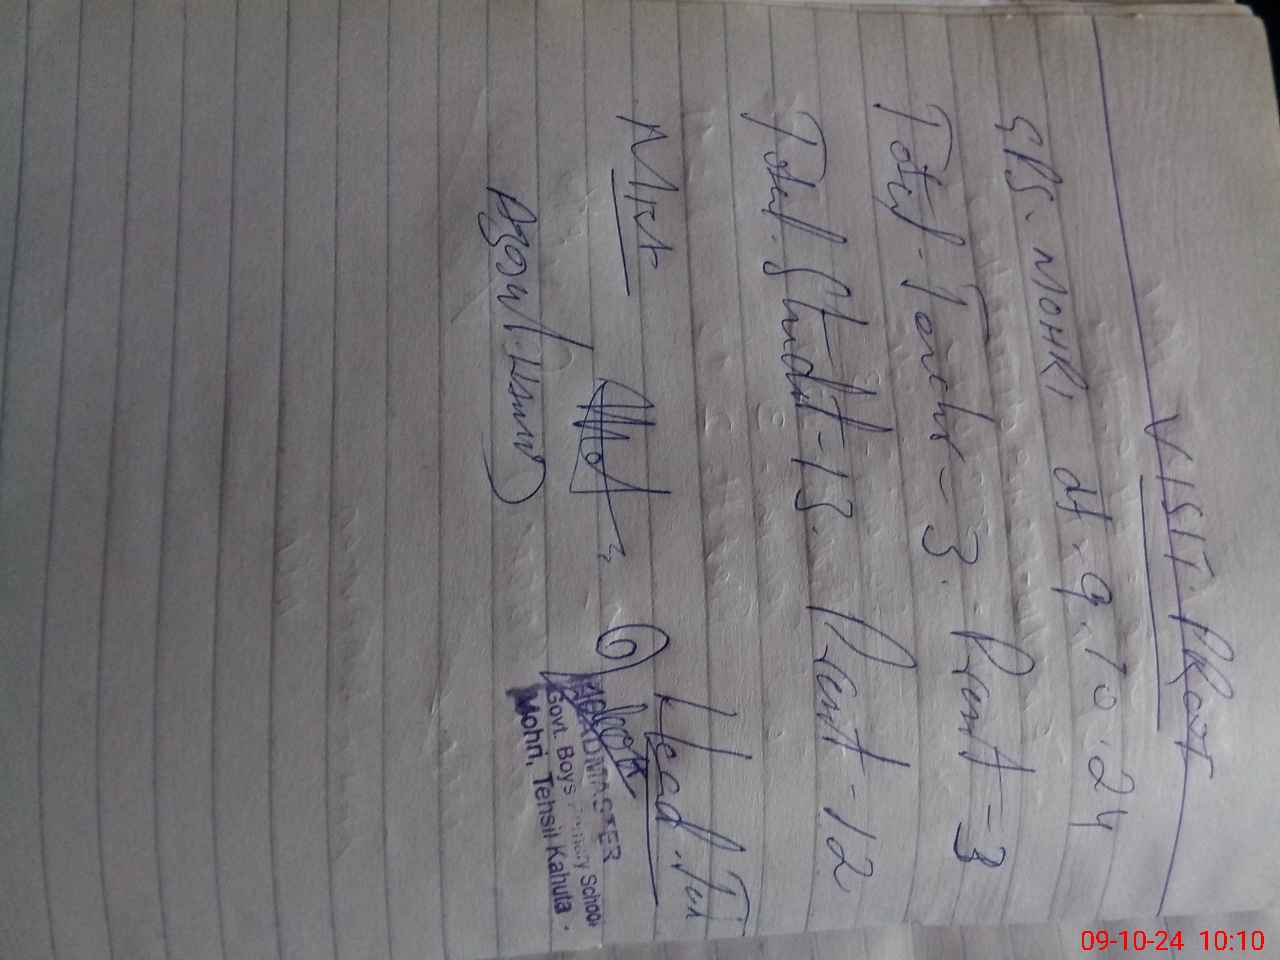 VISIT. PROF
GPS. MOHRI dt. 9.10.24
Total - Teacher = 3. Prent = 3
Total. Student - 13. Prent - 12
Head. Tr
HEADMASTER
Govt. Boys Primary School
Mohri, Tehsil Kahuta.
09-10-24 10:10